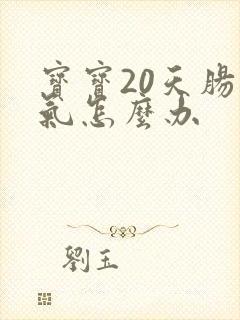 寶寶20天腸
氣怎麼办
劉玉